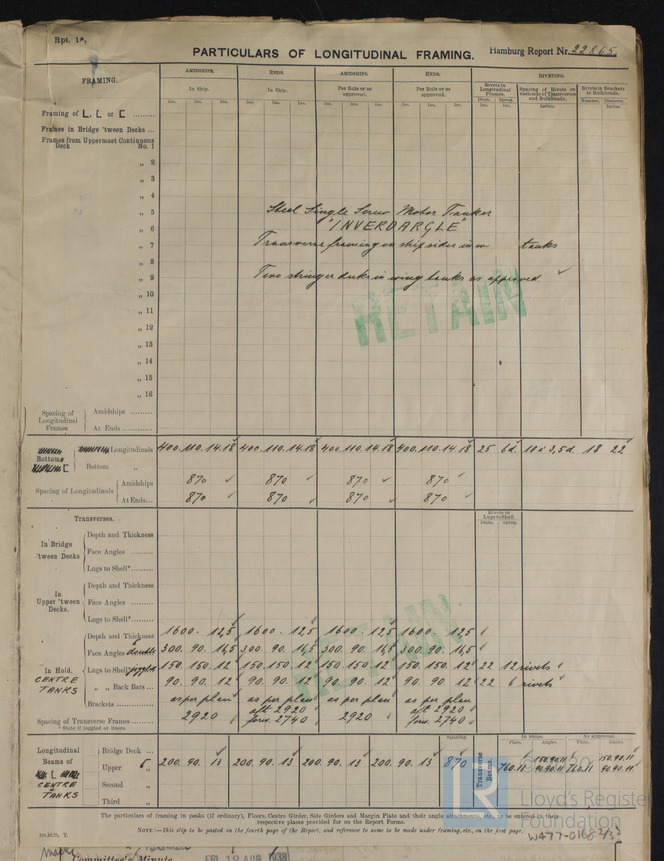 Rpt. 1*.
PARTICULARS OF LONGITUDINAL FRAMING.
Hamburg Report No. 22865.
FRAMING.
AMIDSHIPS. ENDS. AMIDSHIPS. ENDS. RIVETING.
In Ship. In Ship. Per Rule or as approved. Per Rule or as approved.
Rivets in Longitudinal Frames. Spacing of Rivets on each side of Transverses and Bulkheads. Rivets in Brackets to Bulkheads.
Ins. Ins. Ins. Ins. Ins. Ins. Ins. Ins. Ins. Ins. Ins. Ins. Diam. Spcng. Inches. Number. Diameter. Inches.
Framing of L, L or C
Frames in Bridge 'tween Decks ...
Frames from Uppermost Continuous Deck No. 1
„ 2
„ 3
„ 4
„ 5
Steel Single Screw Motor Tanker
„ 6
"INVERDARGLE"
„ 7
Transverse framing on ship sides in tanks
„ 8
„ 9
Two stringer in wing tanks as approved
„ 10
RETAIN
„ 11
„ 12
„ 13
„ 14
„ 15
„ 16
Spacing of Longitudinal Frames Amidships
At Ends
Bottom Longitudinals 400.110.14.18 400.110.14.18 400.110.14.18 400.110.14.18 25 6d 10 à 3,5d 18 22
Bottom „
Spacing of Longitudinals Amidships 870 870 870 870
At Ends... 870 870 870 870
Transverses.
Rivets in Lugs to Shell Diam. Spcng.
In Bridge 'tween Decks Depth and Thickness
Face Angles
Lugs to Shell*
In Upper 'tween Decks. Depth and Thickness
Face Angles
Lugs to Shell*
RETAIN
In Hold. CENTRE TANKS Depth and Thickness 1600. 12,5 1600. 12,5 1600. 12,5 1600. 12,5
Face Angles double 300. 90. 16,5 300. 90. 16,5 300. 90. 16,5 300. 90. 16,5
Lugs to Shell* 150. 150. 12 150.150.12 150.150.12 150.150.12 22 12 rivets
„ „ Back Bars 90. 90. 12 90. 90. 12 90. 90. 12 90. 90. 12 22 6 rivets
Brackets as per plan as per plan as per plan as per plan
Spacing of Transverse Frames 2920 aft 2920 forw. 2740 2920 aft 2920 forw. 2740
* State if joggled or liners.
Spacing. In Ships. As approved.
Plate. Angles. Plate. Angles.
Longitudinal Beams of CENTRE TANKS
Bridge Deck ...
Upper „ 200. 90. 13 200. 90. 13 200. 90. 13 200. 90. 13 870 Transverse Beams. 760.11 150.90.11 90.90.11 760.11 150.90.11 90.90.11
Second „
Third „
The particulars of framing in peaks (if ordinary), Floors, Centre Girder, Side Girders and Margin Plate and their angle attachments, etc., to be entered in their
respective places provided for on the Report Forms.
NOTE:—This slip to be pasted on the fourth page of the Report, and reference to same to be made under framing, etc., on the first page.
Lloyd's Register
Foundation
W477-0168 2/3
Committee's Minute
FRI 19 AUG 1938